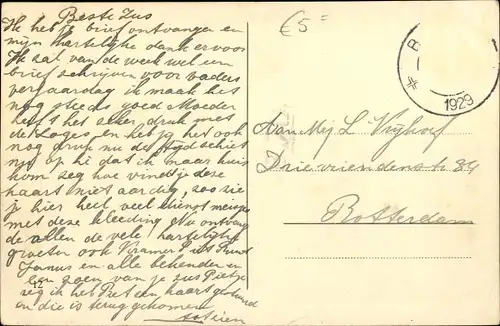 Beste Zus
Ik heb je brief ontvangen en
mijn hartelijke dank ervoor
Ik zal van de week wel een
brief schrijven voor vaders
verjaardag ik maak het
nog steeds goed Moeder
heeft het aller druk met
de Loges en heb je het ook
nog druk nu de tijd schiet
nu op hé dat ik maar huis
kom zeg hoe vind je deze
kaart niet aardig, zoo zie
je hier heel veel
met deze kleeding Nu ontvang
de allen de vele hartelijke
groeten ook Kramer
Janus en alle bekenden en
een zoen van je zus Pietje
zeg ik heb Bet een kaart gestuurd
en die is terug gekomen
€5=
R
* 1929
Aan Mej L Vrijhof
Drievriendenstr 84
Rotterdam